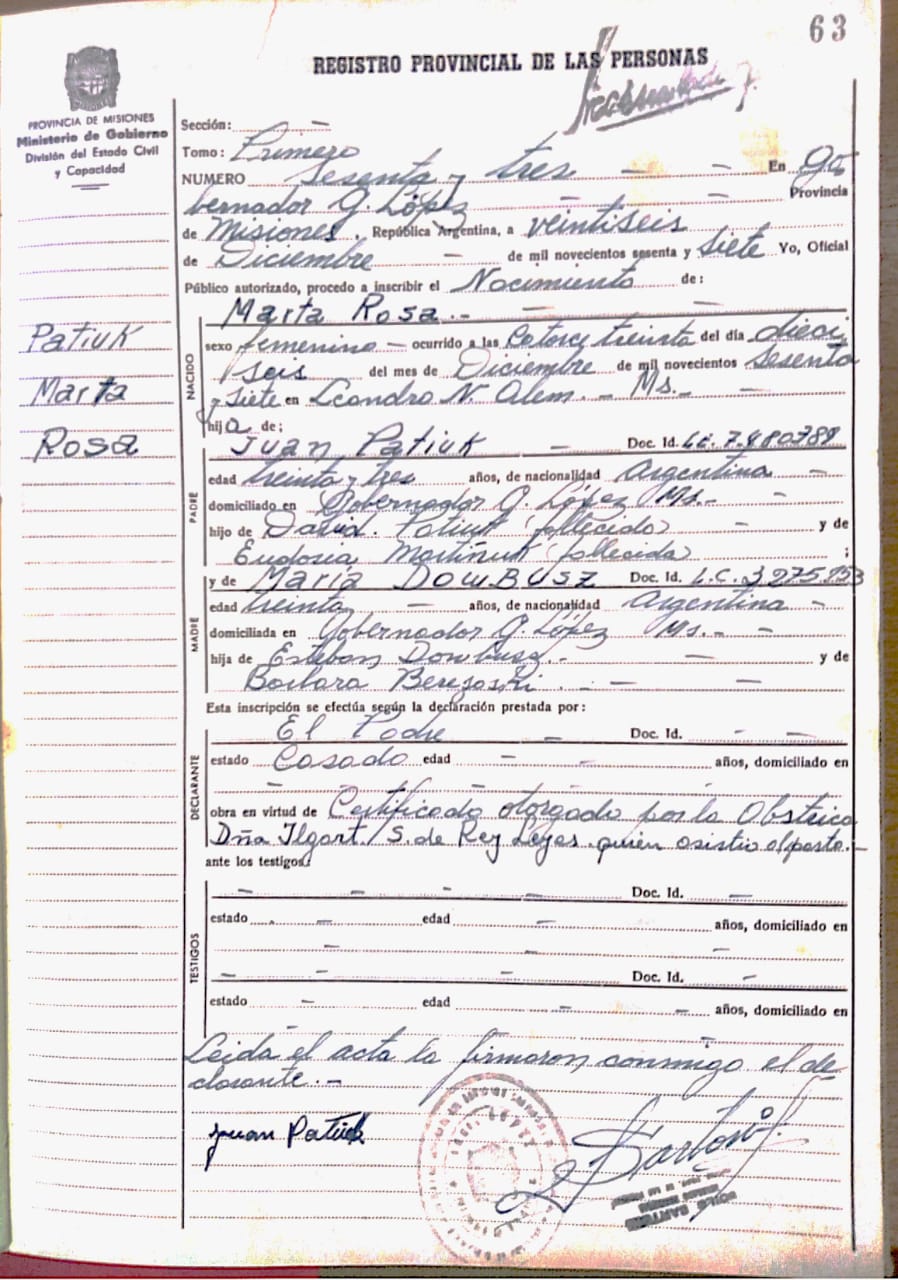 63
REGISTRO PROVINCIAL DE LAS PERSONAS
PROVINCIA DE MISIONES
Ministerio de Gobierno
División del Estado Civil
y Capacidad
Patiuk
Marta
Rosa
Sección:
Tomo: Primero
NUMERO Sesenta y tres — — En Go
bernador G. López — Provincia
de Misiones. República Argentina, a veintiseis
de Diciembre — de mil novecientos sesenta y siete Yo, Oficial
Público autorizado, procedo a inscribir el Nacimiento de:
NACIDO
Marta Rosa.- — —
sexo femenino — ocurrido a las Catorce treinta del día dieci
seis del mes de Diciembre de mil novecientos sesenta
y siete en Leandro N. Alem. — Ms.- —
hija de;
PADRE
Juan Patiuk — Doc. Id. L.E. 7.480.789
edad treinta y tres años, de nacionalidad Argentina —
domiciliado en Gobernador G. López Ms.- —
hijo de David. Patiuk (fallecido) — y de
Eudosia Martiñuk (fallecida) ;
MADRE
y de María DOMBUSZ Doc. Id. L.C. 3.275.953
edad treinta — años, de nacionalidad Argentina —
domiciliada en Gobernador G. López Ms.- —
hija de Esteban Dombusz.- — y de
Barbara — —
Esta inscripción se efectúa según la declaración prestada por:
DECLARANTE
El Padre — Doc. Id. — —
estado Casado edad — — años, domiciliado en
— — — —
obra en virtud de Certificado otorgado por la Obstrica
Dña S. de Rey quien asistio al parto.-
ante los testigos:
TESTIGOS
— — — — Doc. Id. —
estado — edad — años, domiciliado en
— — —
— — — Doc. Id. —
estado — edad — — años, domiciliado en
—
Leida el acta la firmaron conmigo el de
clarante.-
Juan Patiuk
LÓPEZ